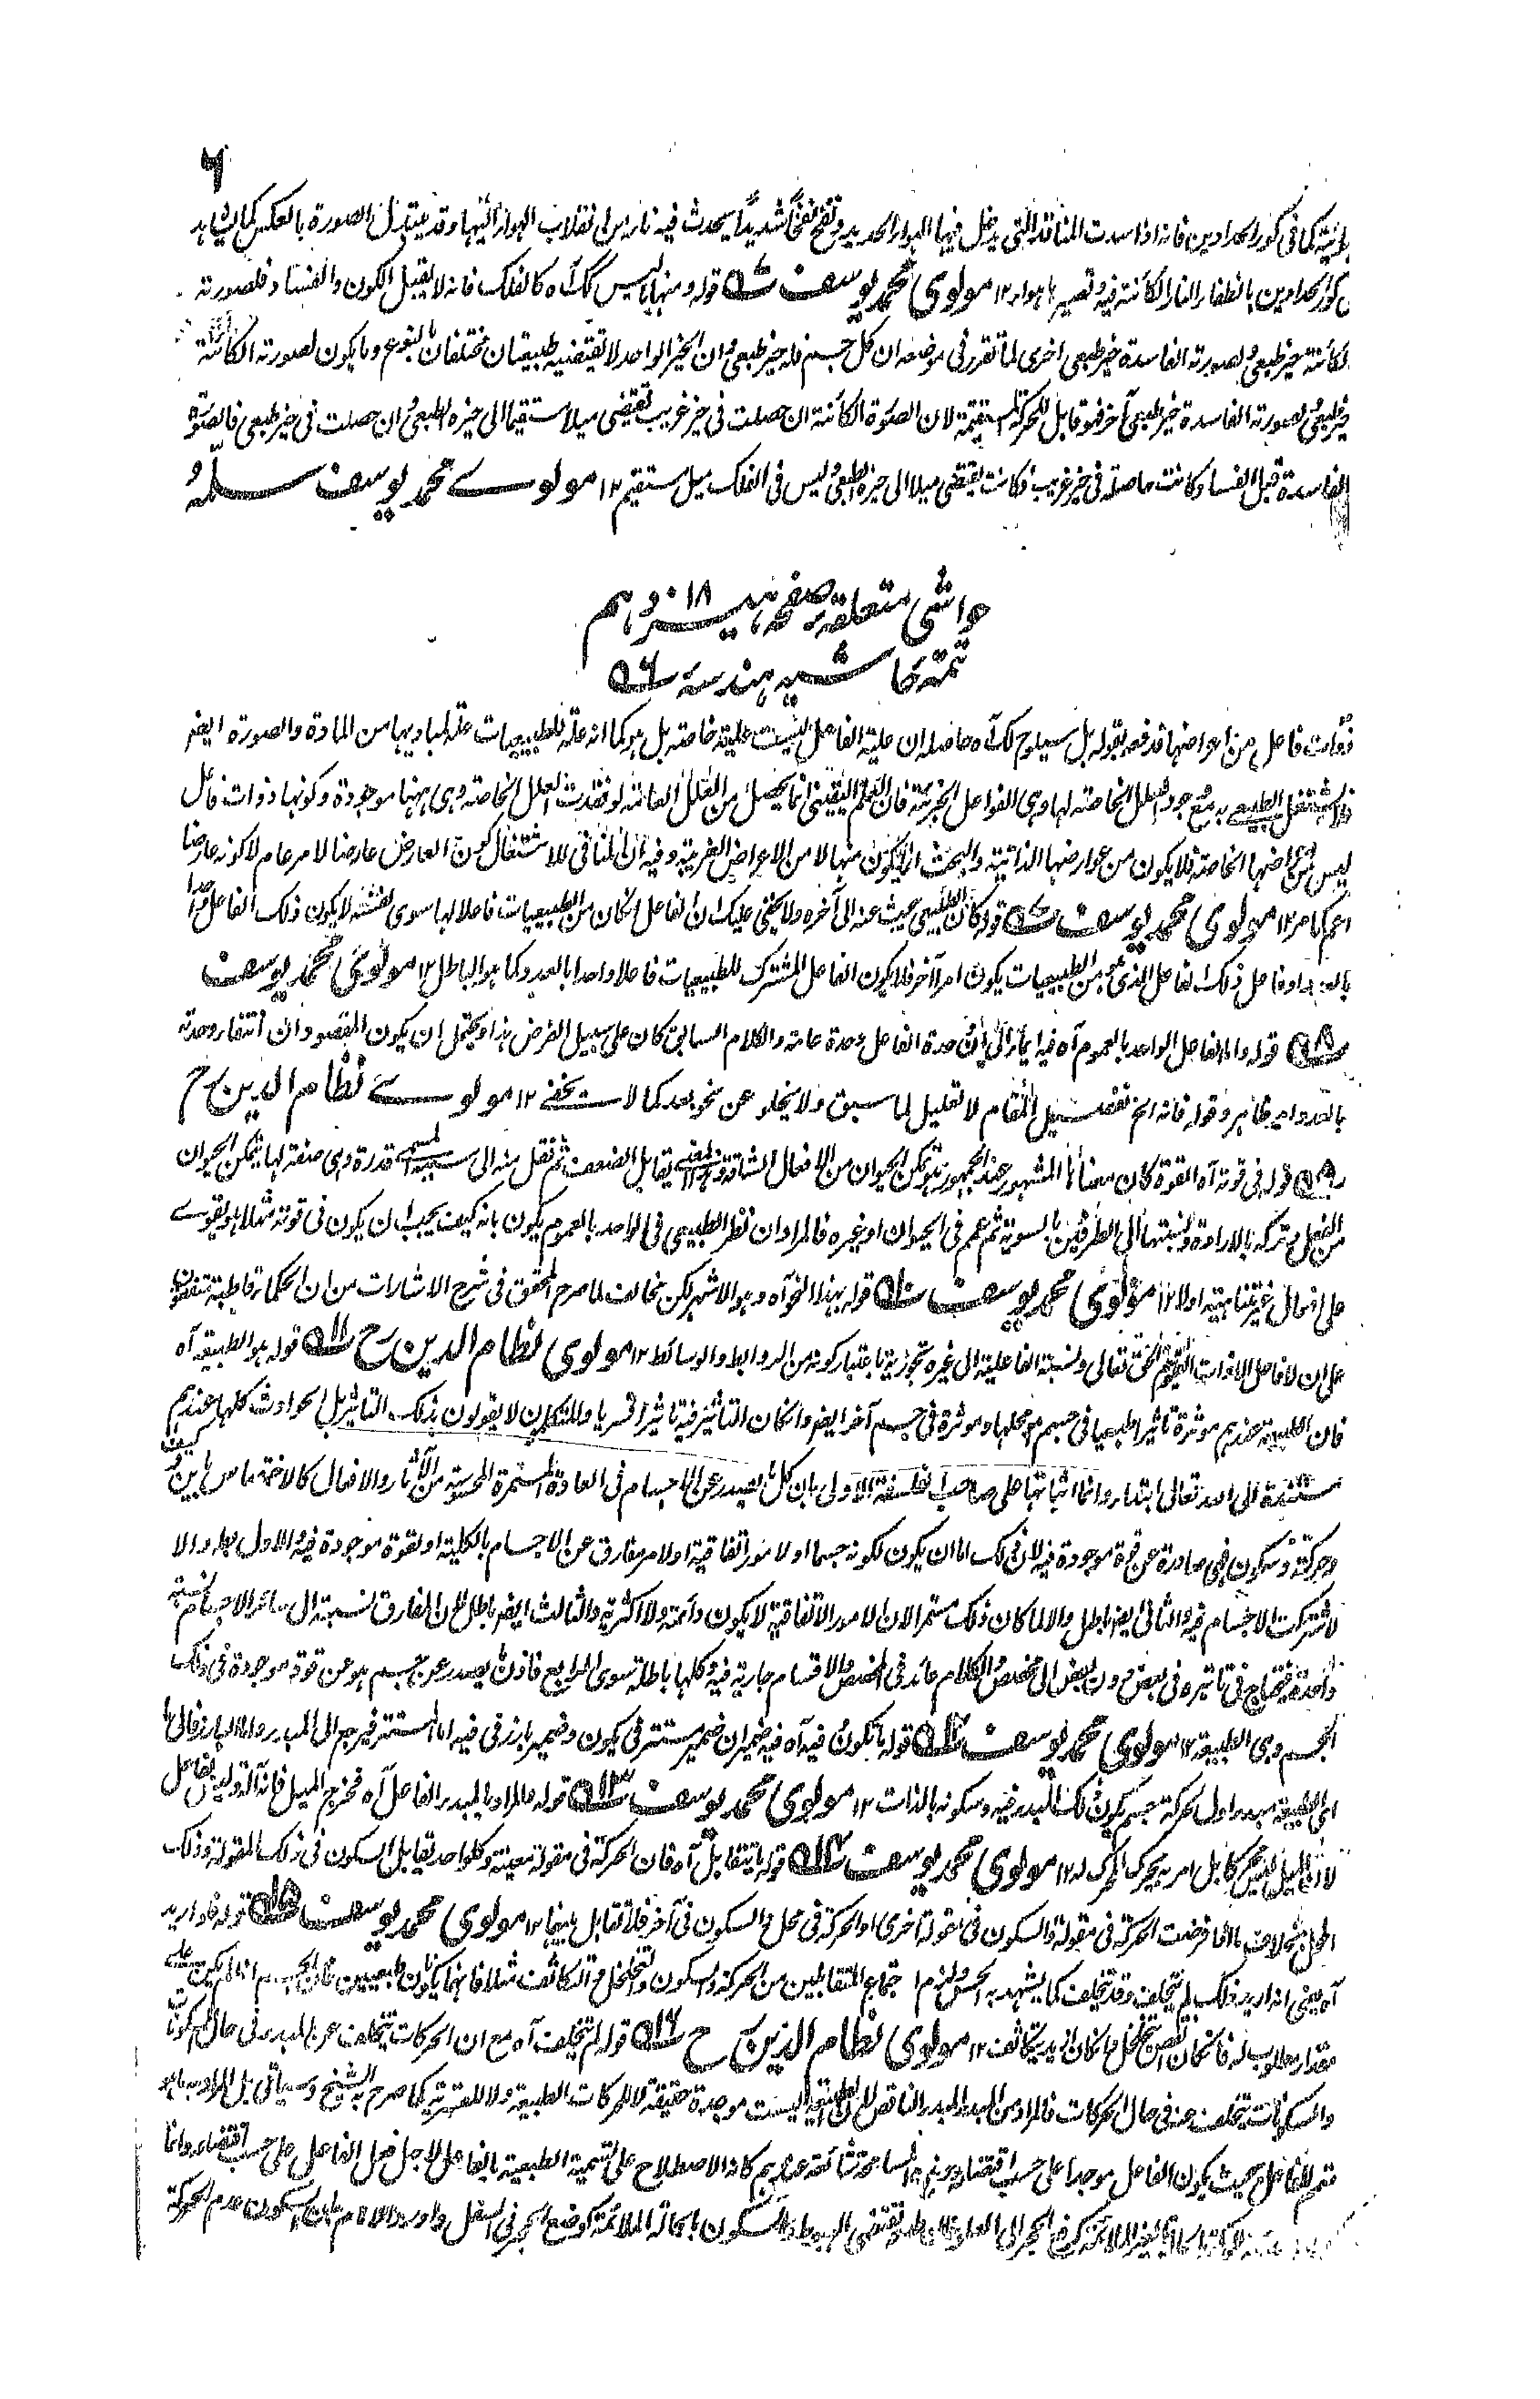 ٦
كما فى كور الحدادين فانه اذا سدت المنافذ التى يدخل فيها الهواء الجديد و نفخ نفخًا شديدًا يحدث فيه نار من انقلاب الهواء اليها وقد يتبدل الصورة بالعكس كما يشاهد
كور الحدادين بانطفاء النار الكائنة فيه وتصير هواء ١٢ مولوى محمد يوسف قوله ومنها ما ليس كك آه كالفلك فانه لا يقبل الكون والفساد فلصورته
الكائنة حيز طبعى ولصورته الفاسدة حيز طبعى اخرى لما تقرر فى موضعه ان كل جسم فله حيز طبعى وان الحيز الواحد لا تقتضيه طبيعتان مختلفتان بالنوع وما يكون لصورته الكائنة
حيز طبعى ولصورته الفاسدة حيز طبعى آخر فهو قابل للحركة المستقيمة لان الصورة الكائنة ان حصلت فى حيز غريب تقتضى ميلا مستقيما الى حيزه الطبعى وان حصلت فى حيز طبعى فالصورة
الفاسدة قبل الفساد كانت حاصلة فى حيز غريب فكانت تقتضى ميلا الى حيزه الطبعى وليس فى الفلك ميل مستقيم ١٢ مولوے محمد يوسف سلمہ
حواشى متعلقہ صفحہ ١٨
تتمہ حاشیہ ہندسہ
فاعل من اعراضها فدفعه بقوله بل سيلوح لك آه حاصله ان علية الفاعل ليست علية خاصة بل هو كما انه علة للطبيعيات علة لمباديها من المادة والصورة ايضا
مع وجود العلل الخاصة لها وهى الفواعل الجزئية فان العلم اليقينى انما يحصل من العلل العامة لو فقدت العلل الخاصة وهى ههنا موجودة وكونها ذوات فاعل
ليس من اعراضها الخاصة فلا يكون من عوارضها الذاتية والبحث انما يكون منها لا من الاعراض الغريبة وفيه ان المنافى للاشتغال كون العارض عارضا لامر عام لا كونه عارضا
اعم كما مر ١٢ مولوى محمد يوسف قوله كان الطبيعى يبحث عنه الى آخره ولا يخفى عليك ان الفاعل ان كان من الطبيعيات فاعلا لها سوى نفسه لا يكون ذلك الفاعل واحدا
بالعدد وفاعل ذلك الفاعل الذى هو من الطبيعيات يكون امرا آخر فلا يكون الفاعل المشترك للطبيعيات فاعلا واحدا بالعدد كما هو الباطل ١٢ مولوى محمد يوسف
قوله واما الفاعل الواحد بالعموم آه فيه ايماء الى ان وحدة الفاعل وحدة عامة والكلام السابق كان على سبيل الفرض هذا ويحتمل ان يكون المقصود ان انتفاء وحدته
بالعدد امر ظاهر وقوله فانه الخ تفصيل المقام لا تعليل لما سبق ولا يخلو عن نحو بعد كما لا يخفے ١٢ مولوے نظام الدين رح
قوله فى قوته آه القوة كان معناها المشهور عند الجمهور تمكن الحيوان من الافعال الشاقة يقابل الضعف ثم نقل منه الى قدرة وهى صفة لها يتمكن الحيوان
من الفعل وتركه بالارادة ونسبتها الى الطرفين بالسوية ثم عمم فى الحيوان او غيره فالمراد ان نظر الطبيعى فى الواحد بالعموم يكون بانه كيف يجب ان يكون فى قوته مثلا هل يقوے
على افعال غير متناهية اولا ١٢ مولوى محمد يوسف قوله بهذا النحو آه وهو الاشهر لكن مخالف لما صرح المحقق فى شرح الاشارات من ان الحكماء قاطبة متفقون
على ان لا فاعل الا ذات القيوم الحق تعالى ونسبة الفاعلية الى غيره تجوزية باعتبار كونه من الروابط والوسائط ١٢ مولوى نظام الدين رح قوله هو الطبيعة آه
فان الطبيعة عندهم مؤثرة تاثيرا طبعيا فى جسم هو محلها ومؤثرة فى جسم آخر ايضا وان كان التاثير فيه تاثيرا قسريا والمتكلمون لا يقولون بذلك التاثير بل الحوادث كلها عندهم
مستندة الى الله تعالى ابتداء وانما اثباتها على صاحب الفلسفة الاولى بان كل ما يصدر عن الاجسام فى العادة المستمرة المحسوسة من الآثار والافعال كالاختصاص باين وكيف
وحركة وسكون فهى صادرة عن قوة موجودة فيه لان ذلك اما ان يكون لكونه جسما او لامور اتفاقية او لامر مفارق عن الاجسام بالكلية او لقوة موجودة فيه والاول باطل والا
لاشتركت الاجسام فيه والثانى ايضا باطل والا لما كان ذلك مستمرا لان الامور الاتفاقية لا يكون دائمة ولا اكثرية والثالث ايضا باطل لان المفارق نسبته الى سائر الاجسام نسبة
واحدة فيحتاج فى تاثيره فى بعض دون بعض الى مخصص والكلام عائد فى المخصص والاقسام جارية فيه وكلها باطلة سوى الرابع فاذن ما يصدر عن جسم هو عن قوة موجودة فى ذلك
الجسم وهى الطبيعة ١٢ مولوى محمد يوسف قوله ما يكون فيه آه فيه ضميران ضمير مستتر فى يكون وضمير بارز فى فيه اما المستتر فيرجع الى المبدء واما البارز فالى ما
اى الطبيعة مبدء اول لحركة جسم يكون ذلك المبدء فيه وسكونه بالذات ١٢ مولوى محمد يوسف قوله والمراد بالمبدء الفاعل آه فخرج الميل فانه آلة وليس بفاعل
لان الميل ليس محركا بل امر به يحرك المحرك له ١٢ مولوى محمد يوسف قوله ما يتقابل آه فان الحركة فى مقولة معينة وكلواحد يقابل السكون فى ذلك المقولة وذلك
المحل بخلاف ما اذا فرضت الحركة فى مقولة والسكون فى مقولة اخرى او الحركة فى محل والسكون فى آخر فلا تقابل بينهما ١٢ مولوى محمد يوسف قوله فاذا اريد
آه يعنى اذا اريد ذلك لم يتخلف وقد تخلف كما يشهد به الحس ولزم اجتماع المتقابلين من الحركة والسكون والتخلخل والتكاثف مثلا فانهما يكونان طبيعيين فان الجسم اذا لم يكن على
مقدار مطلوب له فان كان انقص تخلخل وان كان ازيد يتكاثف ١٢ مولوى نظام الدين رح قوله لم يتخلف آه مع ان الحركات يتخلف عن المبدء فى حال السكونات
والسكونات يتخلف عنه فى حال الحركات فالمراد من المبدء المبدء الناقص لان الطبيعة ليست موجدة حقيقة لا للحركات الطبيعية ولا للقسرية كما صرح به الشيخ وسيأتى بل المراد به ما هو
متمم للفاعل بحيث يكون الفاعل موجدا على حسب اقتضاءه وهذه المسامحة شائعة عندهم كانه الاصطلاح على تسمية الطبيعة بالفاعل لاجل فعل الفاعل على حسب اقتضاءه وانما
الحجر الى العلو تقتضى الهبوط والسكون بالحالة الملائمة كوضع الحجر فى السفل واورد الامام بان السكون عدم الحركة